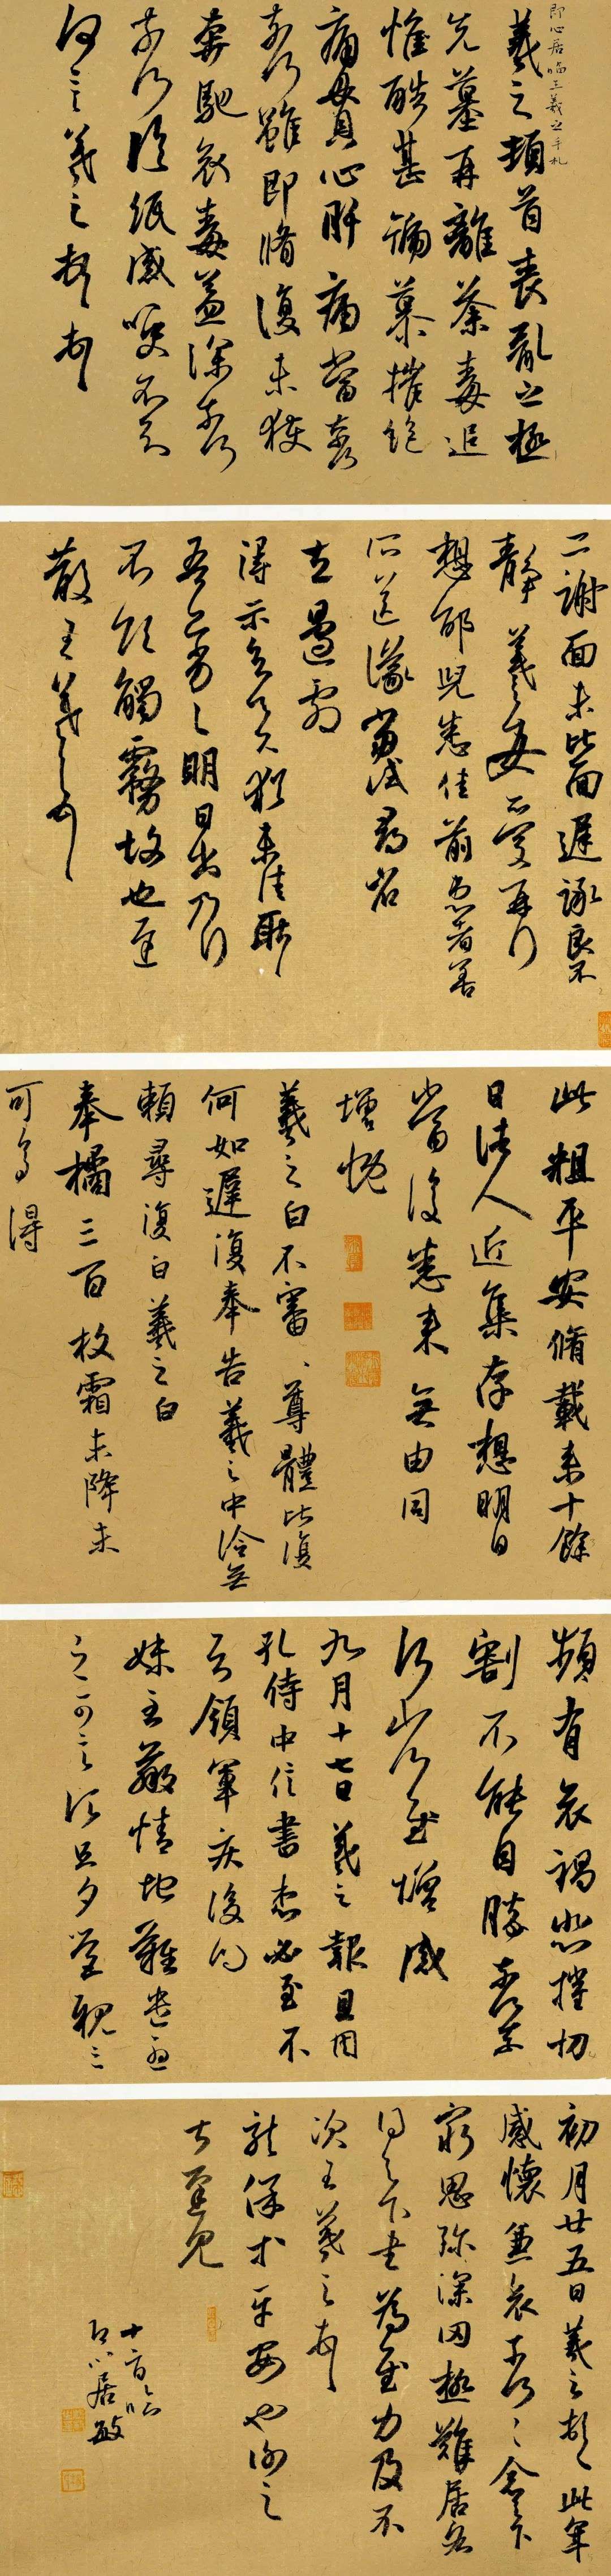 即心居临王羲之手札
羲之頓首喪亂之極
先墓再離荼毒追
惟酷甚號慕摧絕
痛貫心肝痛當奈何
奈何雖即脩復未獲
奔馳哀毒益深奈何
奈何臨紙感哽不知
何言羲之頓首頓首
二謝面未比面遲詠良不
靜羲之女愛再拜
想邰兒悉佳前患者善
所送議當試尋省
左邊劇
得示知足下猶未佳耿耿
吾亦劣劣明日出乃行
不欲觸霧故也遲
散王羲之頓首
此粗平安脩載來十餘
日諸人近集存想明日
當復悉來無由同
增慨
羲之白不審尊體比復
何如遲復奉告羲之中冷無
賴尋復白羲之白
奉橘三百枚霜未降未
可多得
頻有哀禍悲摧切
割不能自勝奈何奈
何省慰增感
九月十七日羲之報且因
孔侍中信書想必至不
知領軍疾後問
妹至羸情地難遣憂
之可言須旦夕營視之
初月廿五日羲之頓首此年
感懷兼哀奈何奈何念足下
窮思深罔極難居
得足下書為慰力及不
次王羲之頓首
龍保等平安也謝之
甚遲見
十一月临
即心居敏